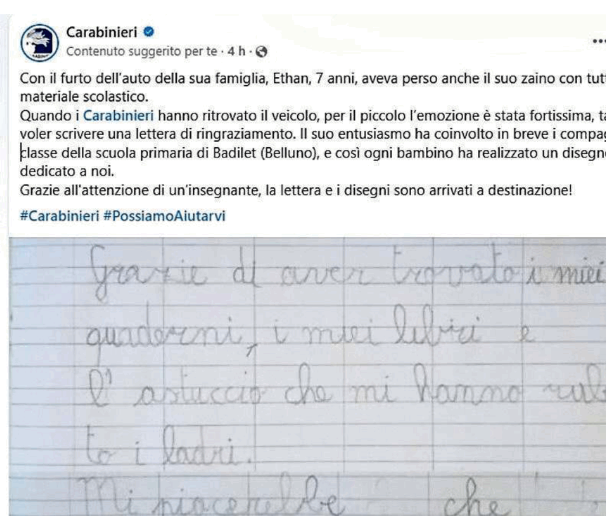 Carabinieri
Contenuto suggerito per te · 4 h ·
Con il furto dell'auto della sua famiglia, Ethan, 7 anni, aveva perso anche il suo zaino con tutt
materiale scolastico.
Quando i Carabinieri hanno ritrovato il veicolo, per il piccolo l'emozione è stata fortissima, ta
voler scrivere una lettera di ringraziamento. Il suo entusiasmo ha coinvolto in breve i compag
classe della scuola primaria di Badilet (Belluno), e così ogni bambino ha realizzato un disegno
dedicato a noi.
Grazie all'attenzione di un'insegnante, la lettera e i disegni sono arrivati a destinazione!
#Carabinieri #PossiamoAiutarvi
Grazie di aver trovato i miei
quaderni, i miei libri e
l'astuccio che mi hanno rub
to i ladri.
Mi piacerebbe che